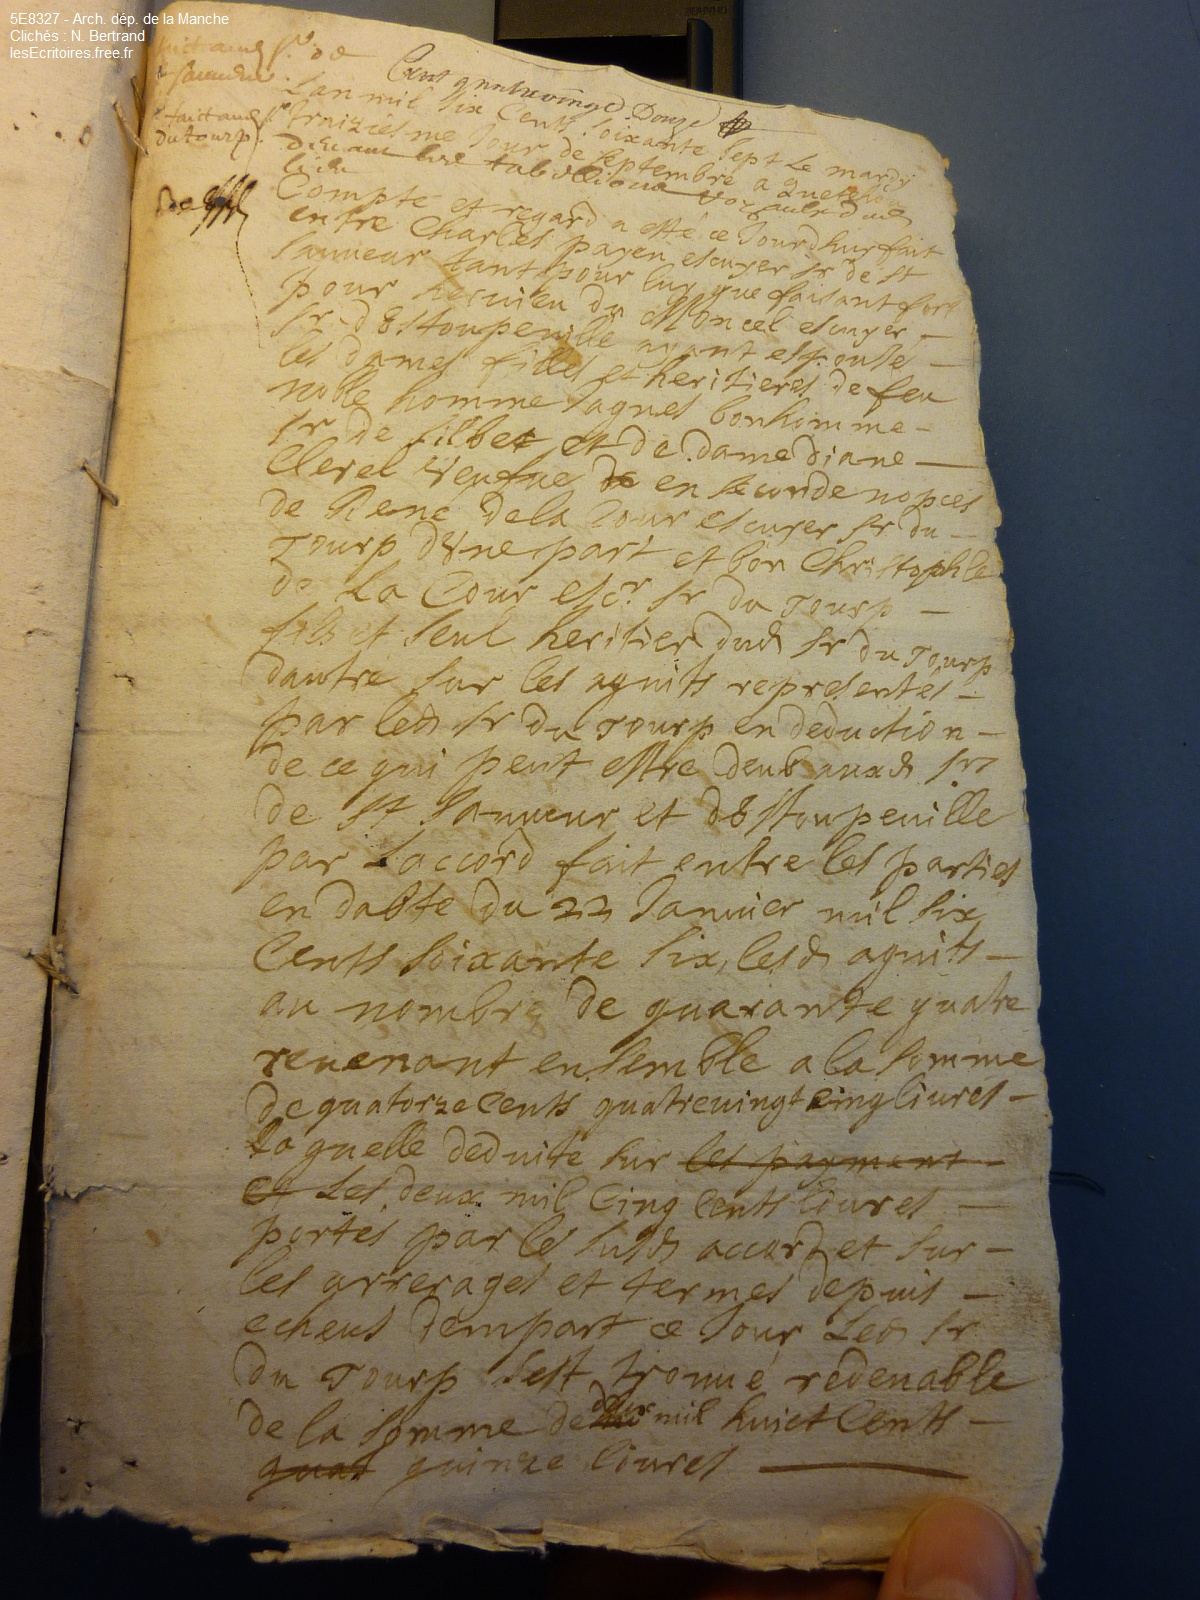 5E8327 - Arch. dép. de la Manche
Clichés : N. Bertrand
lesEcritoires.free.fr
faict aud sr de
st sauueur
faict aud sr
du tourp
Cent quatrevingt Douze
Lan mil six Cents soixante sept Le mardy
traiziesme Jour de septembre a
deuant les tabellions
Compte et regard a esté ce Jourdhuy fait
entre Charles payen escuyer sr de st
sauueur tant pour luy que faisant fort
pour heruieu du Moncel escuyer
sr d8stoupeuille ayant espousé
les dames filles et heritieres de feu
noble homme Jaques bonhomme
sr de silbet et de dame diane
Clerel veufue de en seconde nopces
de René dela Cour escuyer sr du
Tourp d8ne part et bon Christophle
de La Cour escr. sr du Tourp
fils et seul heritier dud sr du Tourp
dautre sur les aquits representés
par led sr du Tourp en deduction
de ce qui peut estre deub auxd srs
de st sauueur et d8stoupeuille
par Laccord fait entre les parties
en dabte du 22 Januier mil six
Cents soixante six, lesd aquits
au nombre de quarante quatre
reuenant ensemble a la somme
de quatorze Cents quatreuingt cinq liures
La quelle deduite sur les payment
et Les deux mil Cinq Cents liures
portes par le susd accord et sur
les arrerages et termes depuis
echeus dempart ce Jour Led sr
du Tourp sest trouué redeuable
de la somme de deux mil huict Cents
quat quinze liures